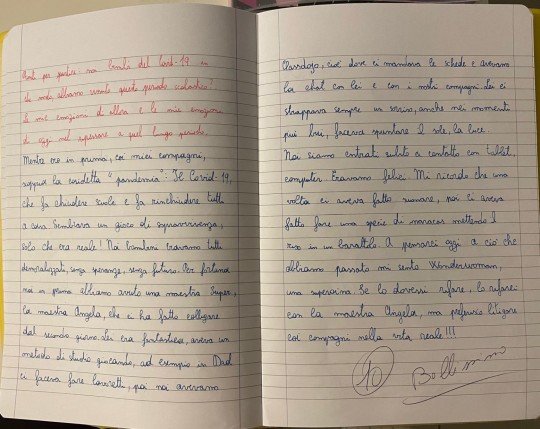 noi bimbi del Covid-19 in
che modo, abbiamo vissuto questo periodo scolastico?
le mie emozioni di allora e le mie emozioni
di oggi nel ripensare a quel lungo periodo.
Mentre ero in prima, coi miei compagni,
scoppiò la cosidetta "pandemia": Il Covid-19,
che fa chiudere scuole e fa rinchiudere tutti
a casa. Sembrava un gioco di sopravvivenza,
solo che era reale! Noi bambini eravamo tutti
demoralizzati, senza speranze, senza futuro. Per fortuna
noi in prima abbiamo avuto una maestra super,
la maestra Angela, che ci ha fatto collegare
dal secondo giorno. Lei era fantastica, aveva un
metodo di studio giocando, ad esempio in Dad
ci faceva fare lavoretti, poi noi avevamo
Classdojo, cioè dove ci mandava le schede e avevamo
la chat con lei e con i nostri compagni. Lei ci
strappava sempre un sorriso, anche nei momenti
più bui, faceva spuntare il sole, la luce.
Noi siamo entrati subito a contatto con tablet,
computer. Eravamo felici. Mi ricordo che una
volta ci aveva fatto suonare, poi ci aveva
fatto fare una specie di maracas mettendo il
riso in un barattolo. A pensarci oggi a ciò che
abbiamo passato mi sento Wonderwoman,
una supereroina. Se lo dovessi rifare, lo rifarei
con la maestra Angela, ma preferisco litigare
coi compagni nella vita reale!!!
10